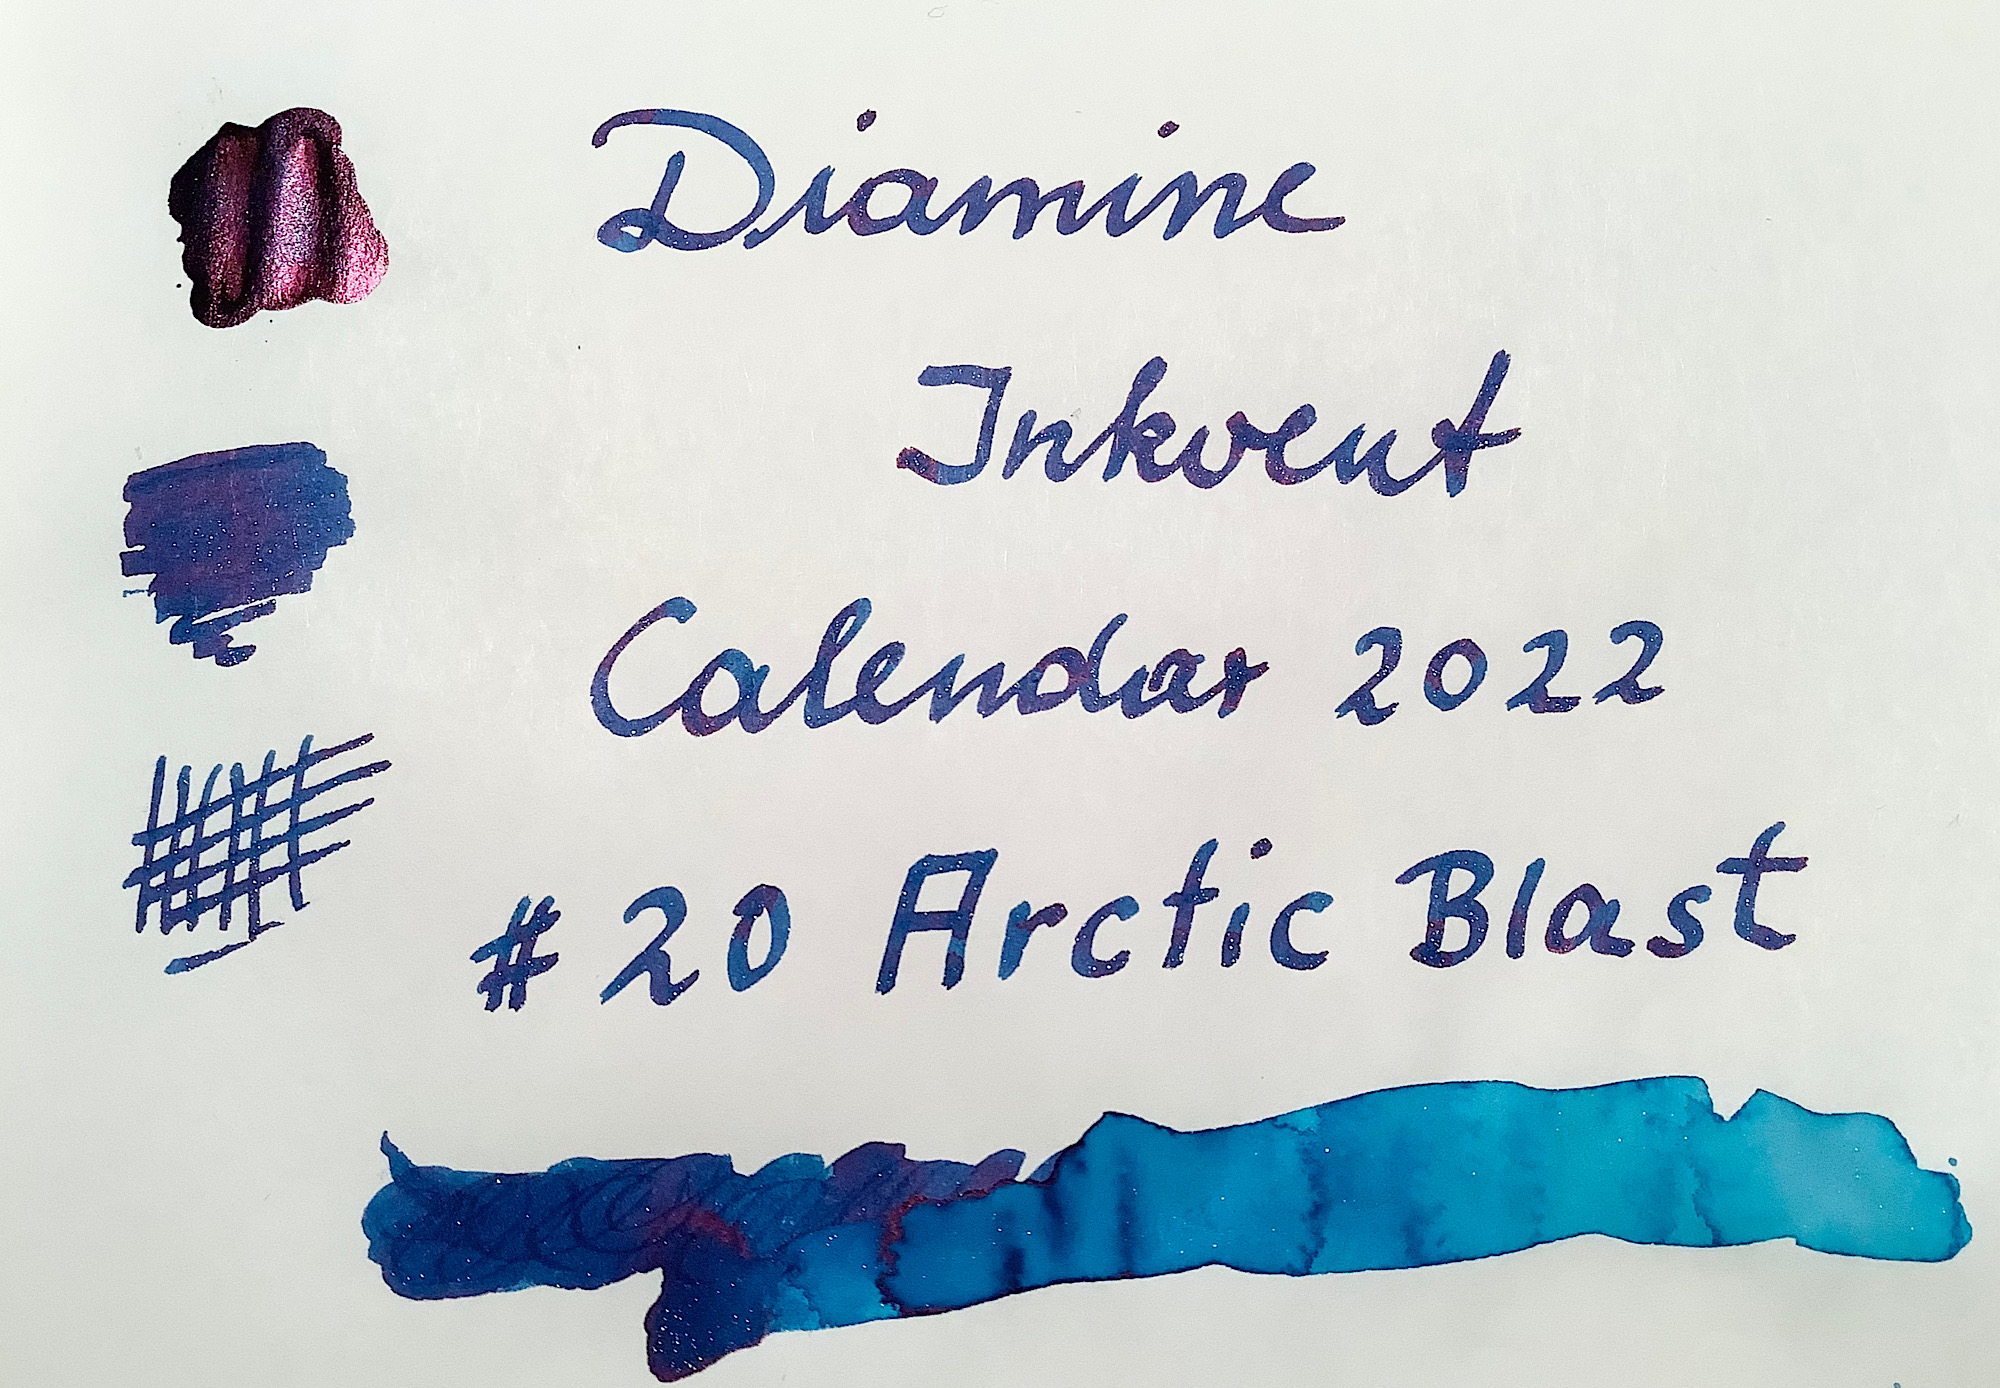 Diamine
Inkvent
Calendar 2022
# 20 Arctic Blast